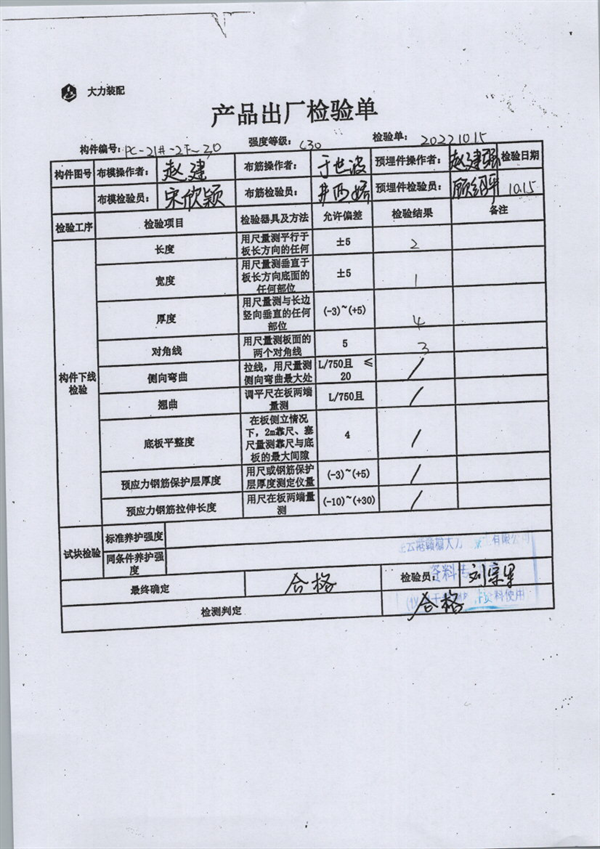 大力装配
产品出厂检验单
构件编号: PC-21#-2F-30 强度等级: C30 检验单: 20221015
构件图号 布模操作者: 赵建 布筋操作者: 于世波 预埋件操作者: 赵建强 检验日期
布模检验员: 宋欣颖 布筋检验员: 预埋件检验员: 10.15
检验工序 检验项目 检验器具及方法 允许偏差 检验结果 备注
构件下线检验
长度 用尺量测平行于板长方向的任何 ±5 2
宽度 用尺量测垂直于板长方向底面的任何部位 ±5 1
厚度 用尺量测与长边竖向垂直的任何部位 (-3)~(+5) 4
对角线 用尺量测板面的两个对角线 5 3
侧向弯曲 拉线,用尺量测侧向弯曲最大处 L/750且 ≤20 /
翘曲 调平尺在板两端量测 L/750且 /
底板平整度 在板侧立情况下,2m靠尺、塞尺量测靠尺与底板的最大间隙 4 /
预应力钢筋保护层厚度 用尺或钢筋保护层厚度测定仪量 (-3)~(+5) /
预应力钢筋拉伸长度 用尺在板两端量测 (-10)~(+30) /
试块检验 标准养护强度
同条件养护强度
最终确定 合格 检验员:
检测判定 合格